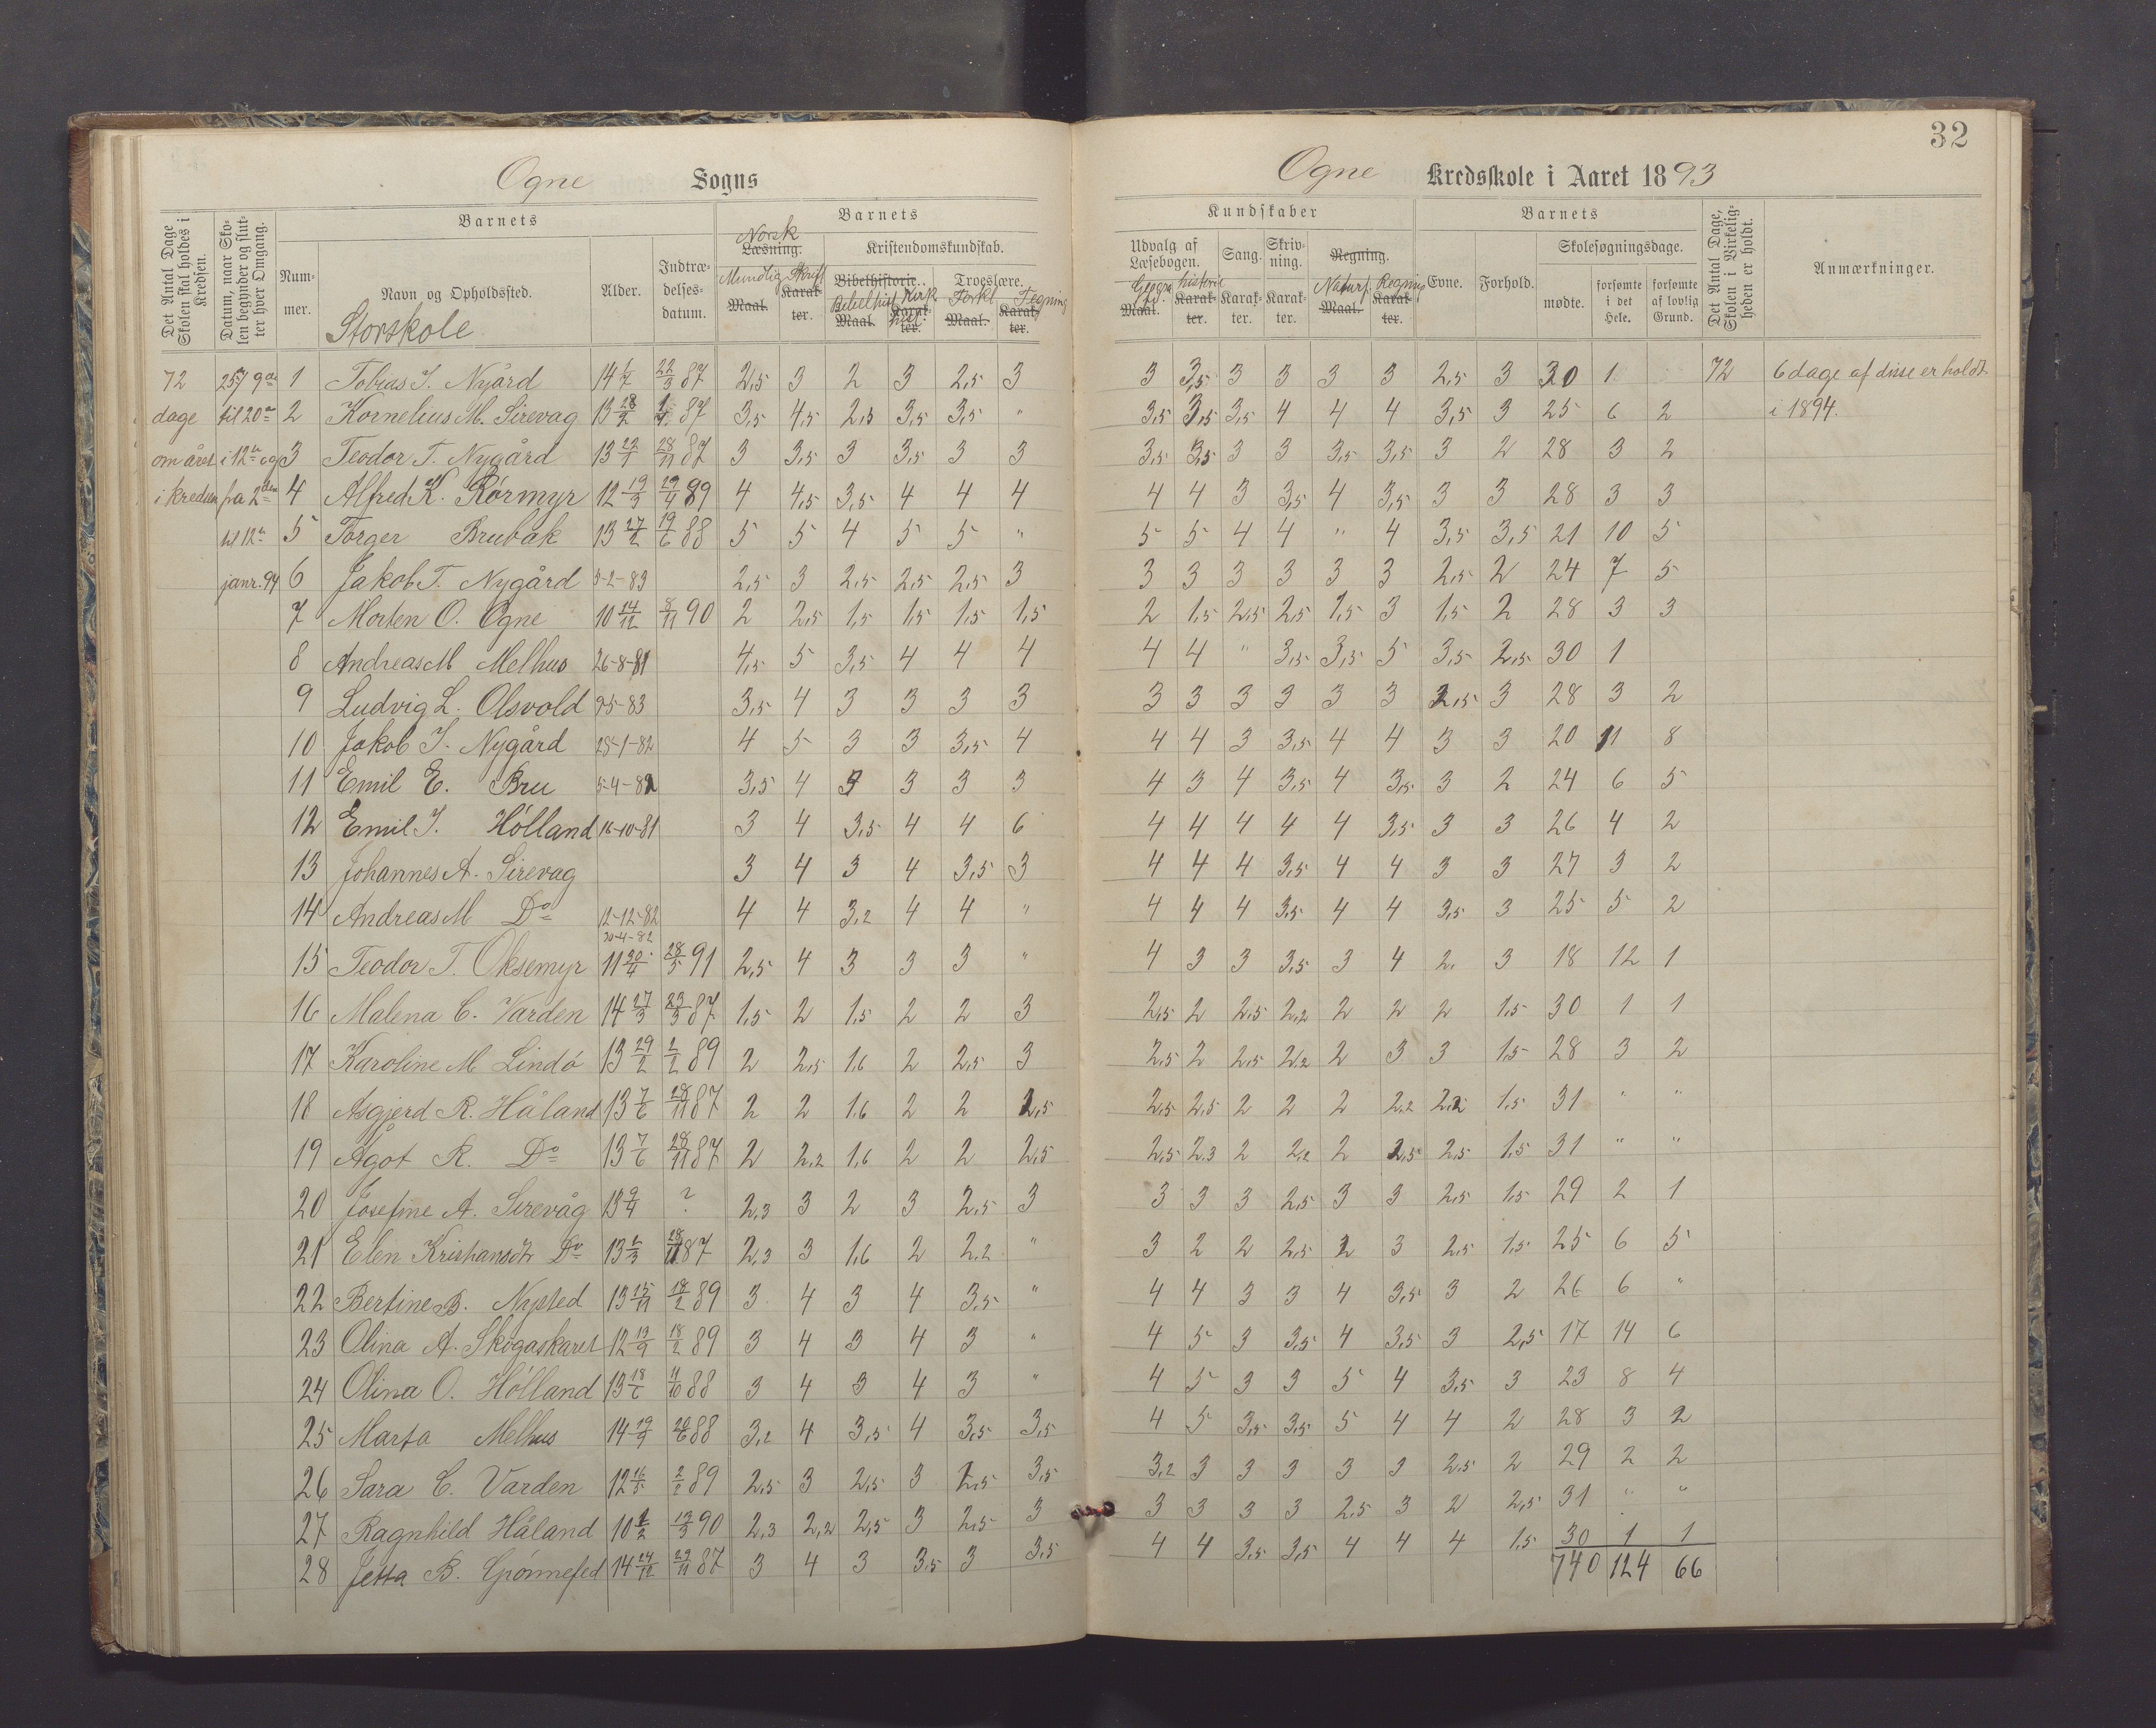 32
Ogne Sogns
Ogne Kredsskole i Aaret 1893
Det Antal Dage Skolen skal holdes i Kredsen.
Datum, naar Skolen begynder og slutter hver Omgang.
Barnets
Nummer.
Navn og Opholdssted.
Storskole
Alder.
Indtrædelses-datum.
Barnets
Norsk
Læsning.
Mundtlig Skriftl
Maal. Karakter.
Kristendomskundskab.
Bibelhistorie. Troeslære.
Bibelhist Kirk hist Forkl Tegning
Maal. Karakter. Maal. Karakter.
Kundskaber
Udvalg af Læsebogen.
Geogra historie
Maal. Karakter.
Sang. Karakter.
Skrivning. Karakter.
Regning.
Naturf. Regning
Maal. Karakter.
Barnets
Evne. Forhold.
Skolesøgningsdage.
mødte. forsømte i det Hele. forsømte af lovlig Grund.
Det Antal Dage, Skolen i Virkeligheden er holdt.
Anmærkninger.
72 1 Tobias T. Nyård 87 2,5 3 2 3 2,5 3 3 3,5 3 3 3 3 2,5 3 30 1 72 6 dage af disse er holdt
dage til 20de 2 Kornelius M. Sirevag 13 28/2 87 3,5 4,5 2,3 3,5 3,5 " 3,5 3,5 3,5 4 4 4 3,5 3 25 6 2 i 1894.
om året i 12te og 3 Teodor T. Nygård 28/11 87 3 3,5 3 3,5 3 3 3,5 3,5 3 3 3,5 3,5 3 2 28 3 2
i kredsen fra 2den 4 Alfred K. Rørmyr 12 19/3 29/4 89 4 4,5 3,5 4 4 4 4 4 3 3,5 4 3,5 3 3 28 3 3
til 12te 5 Torger Brubak 13 27/2 19/6 88 5 5 4 5 5 " 5 5 4 4 " 4 3,5 3,5 21 10 5
janr. 94 6 Jakob T. Nygård 5-2-83 2,5 3 2,5 2,5 2,5 3 3 3 3 3 3 3 2,5 2 24 7 5
7 Morten O. Ogne 10 14/12 8/11 90 2 2,5 1,5 1,5 1,5 1,5 2 1,5 2,5 2,5 1,5 3 1,5 2 28 3 3
8 Andreas M Melhus 26-8-81 4,5 5 3,5 4 4 4 4 4 " 3,5 3,5 5 3,5 2,5 30 1
9 Ludvig L. Olsvold 3,5 4 3 3 3 3 3 3 3 3 3 3 2,5 3 28 3 2
10 Jakob T. Nygård 28-1-82 4 5 3 3 3,5 4 4 4 3 3,5 4 4 3 3 20 11 8
11 Emil E. Bru 5-4-82 3,5 4 3 3 3 3 4 3 4 3,5 4 3,5 3 2 24 6 5
12 Emil T. Hólland 16-10-81 3 4 3,5 4 4 6 4 4 4 4 4 3,5 3 3 26 4 2
13 Johannes A. Sirevag 3 4 3 4 3,5 3 4 4 4 3,5 4 4 3 3 27 3 2
14 Andreas M Do 12-12-82 4 4 3,2 4 4 " 4 4 4 3,5 4 4 3,5 3 25 5 2
20-4-82
15 Teodor T. Oksemyr 11 20/4 28/5 91 2,5 4 3 3 3 " 4 3 3 3,5 3 4 2. 3 18 12 1
16 Malena C. Varden 14 27/3 23/3 87 1,5 2 1,5 2 2 3 2,5 2 2,5 2,2 2 2 2 1,5 30 1 1
17 Karoline M Lindó 13 29/2 2/2 89 2 2,5 1,6 2 2,5 3 2,5 2 2,5 2,2 2 3 3 1,5 28 3 2
18 Asgjerd R. Håland 13 7/6 28/11 87 2 2 1,6 2 2 2,5 2,5 2,5 2 2 2 2,2 2,2 1,5 31 " "
19 Ågot R. Do 13 7/6 28/11 87 2 2,2 1,6 2 2 2,5 2,5 2,3 2 2,2 2 2,5 2,5 1,5 31 " "
20 Josefine A. Sirevåg 13 9/4 ? 2,3 3 2 3 2,5 3 3 3 3 2,5 3 3 2,5 1,5 29 2 1
21 Elen Kristiansdtr Do 87 2,3 3 1,6 2 2,2 " 3 2 2 2,5 2 3 2,5 1,5 25 6 5
22 Bertine B. Nysted 13 15/11 18/2 89 3 4 3 4 3,5 " 4 4 3 3 4 3,5 3 2 26 6 "
23 Olina A. Skogaskaret 12 13/9 18/2 89 3 4 3 4 3 " 4 5 3 3,5 4 3,5 3 2,5 17 14 6
24 Olina O. Hólland 13 18/6 11/10 88 3 4 3 4 3 " 4 5 3 3 5 4 3,5 3 23 8 4
25 Marta Melhus 88 3,2 4 3,5 4 3,5 3,5 4 5 3,5 3,5 5 4 4 2 28 3 2
26 Sara C. Varden 2/2 89 2,5 3 2,5 3 2,5 3,5 3,2 3 3 3 3 3 2,5 2 29 2 2
27 Ragnhild Håland 13/3 90 2,3 2,2 2,5 3 2,5 3 3 3 3 3 2,5 3 2 2,5 31 " "
28 Jetta B. 14 24/12 29/11 87 3 4 3 3,5 3 3,5 4 4 3,5 3,5 4 4 4 1,5 30 1 1
740 124 66